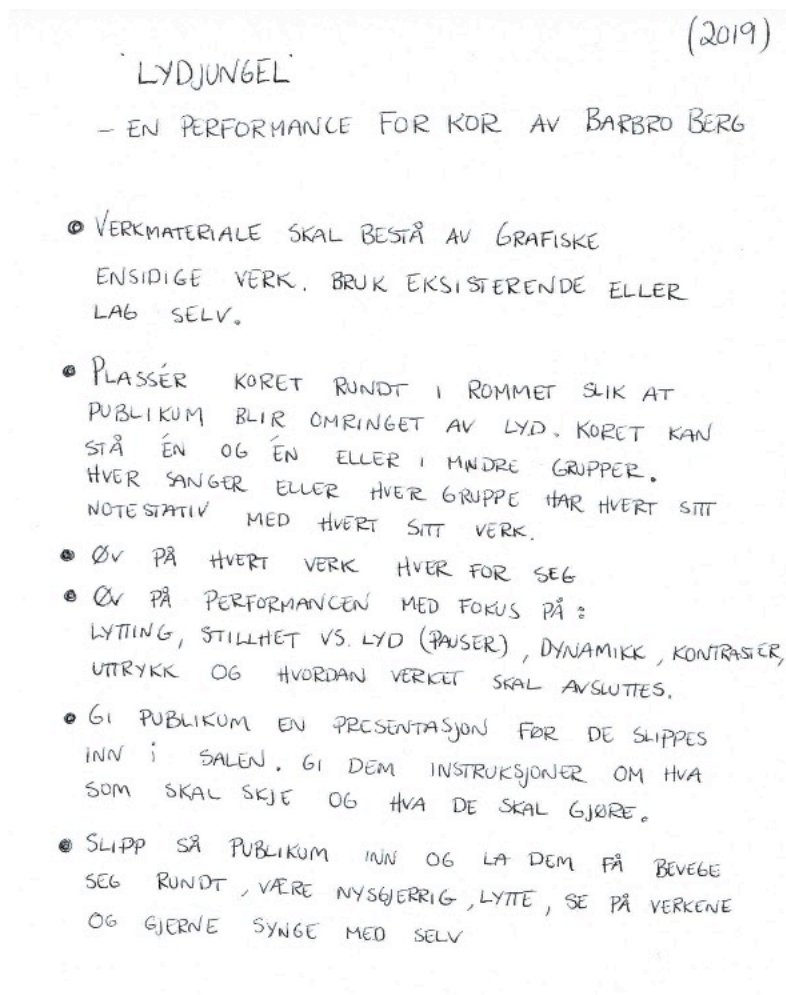 (2019)
'LYDJUNGEL'
- EN PERFORMANCE FOR KOR AV BARBRO BERG
• VERKMATERIALE SKAL BESTÅ AV GRAFISKE
ENSIDIGE VERK. BRUK EKSISTERENDE ELLER
LAG SELV.
• PLASSÉR KORET RUNDT I ROMMET SLIK AT
PUBLIKUM BLIR OMRINGET AV LYD. KORET KAN
STÅ ÉN OG ÉN ELLER I MINDRE GRUPPER.
HVER SANGER ELLER HVER GRUPPE HAR HVERT SITT
NOTESTATIV MED HVERT SITT VERK.
• ØV PÅ HVERT VERK HVER FOR SEG
• ØV PÅ PERFORMANCEN MED FOKUS PÅ:
LYTTING, STILLHET VS. LYD (PAUSER), DYNAMIKK, KONTRASTER,
UTTRYKK OG HVORDAN VERKET SKAL AVSLUTTES.
• GI PUBLIKUM EN PRESENTASJON FØR DE SLIPPES
INN i SALEN. GI DEM INSTRUKSJONER OM HVA
SOM SKAL SKJE OG HVA DE SKAL GJØRE.
• SLIPP SÅ PUBLIKUM INN OG LA DEM FÅ BEVEGE
SEG RUNDT, VÆRE NYSGJERRIG, LYTTE, SE PÅ VERKENE
OG GJERNE SYNGE MED SELV